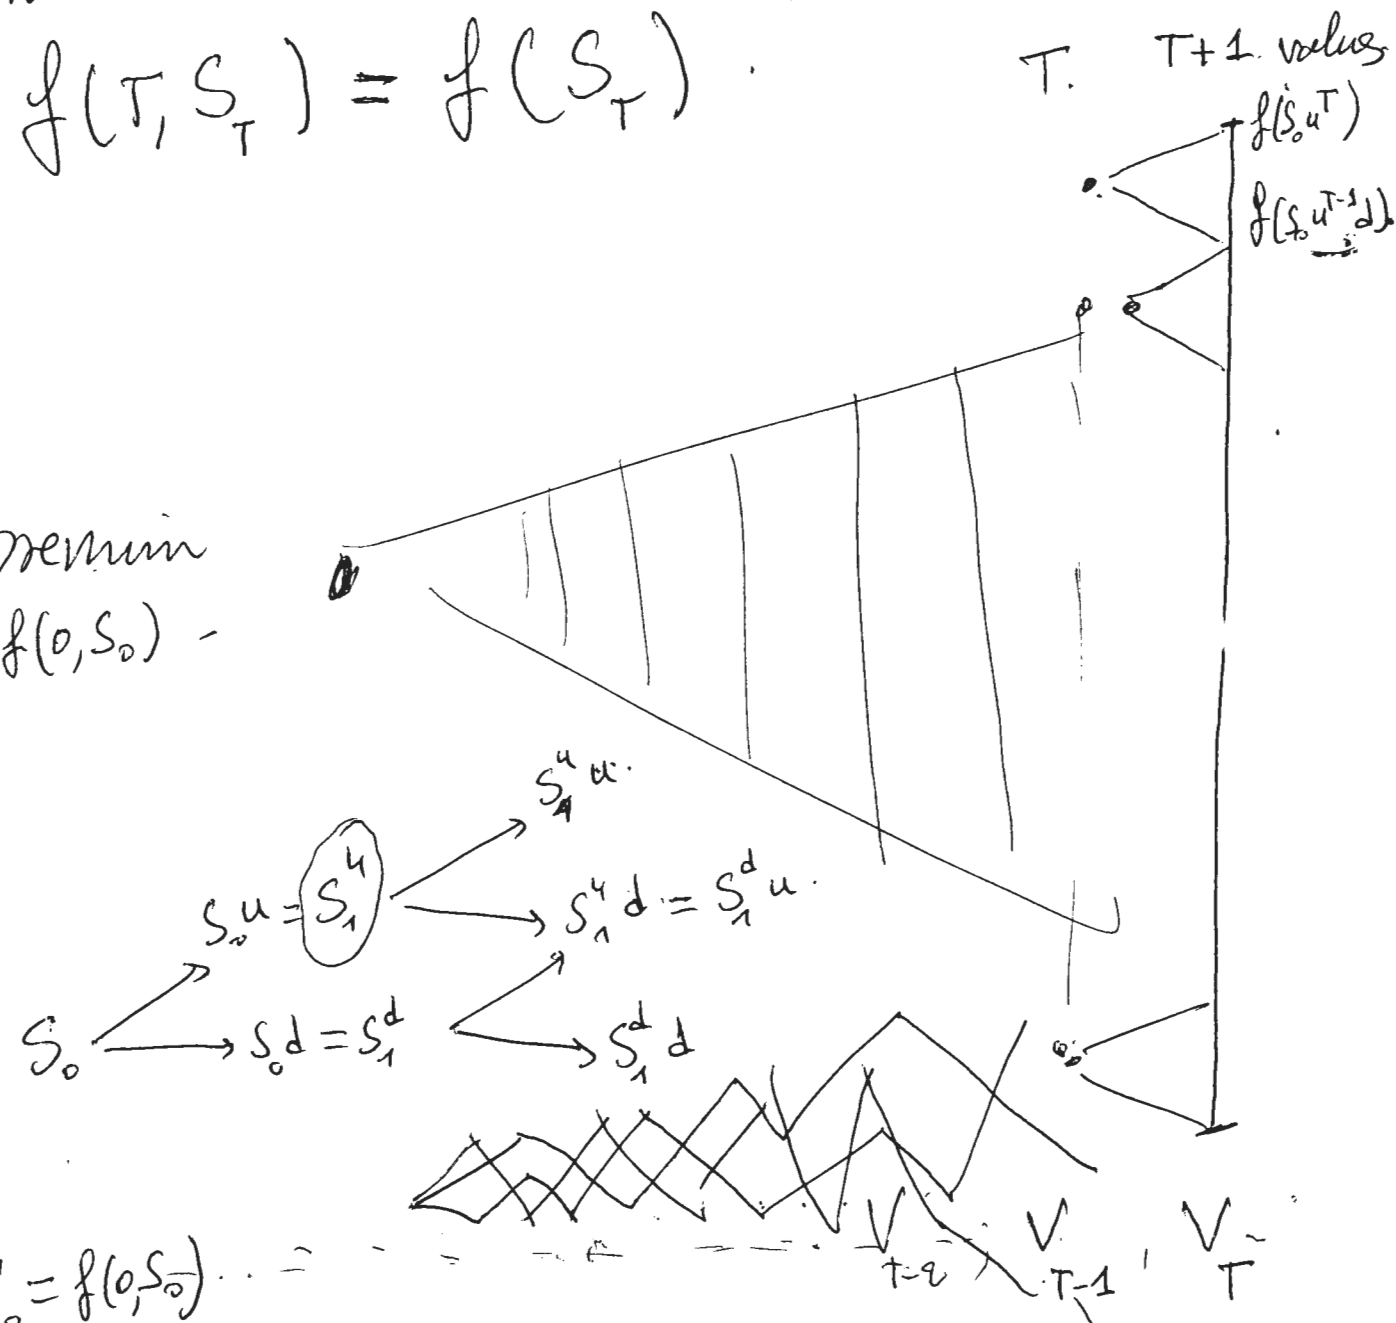 f(T, S_T) = f(S_T)
T. T+1 values
f(S_0 u^T)
f(S_0 u^{T-1} d).
f(0, S_0) -
S_1^u u.
S_0 u = S_1^u
S_1^u d = S_1^d u.
S_0
S_0 d = S_1^d
S_1^d d
= f(0, S_0) . . . V_{T-2}, V_{T-1}, V_T